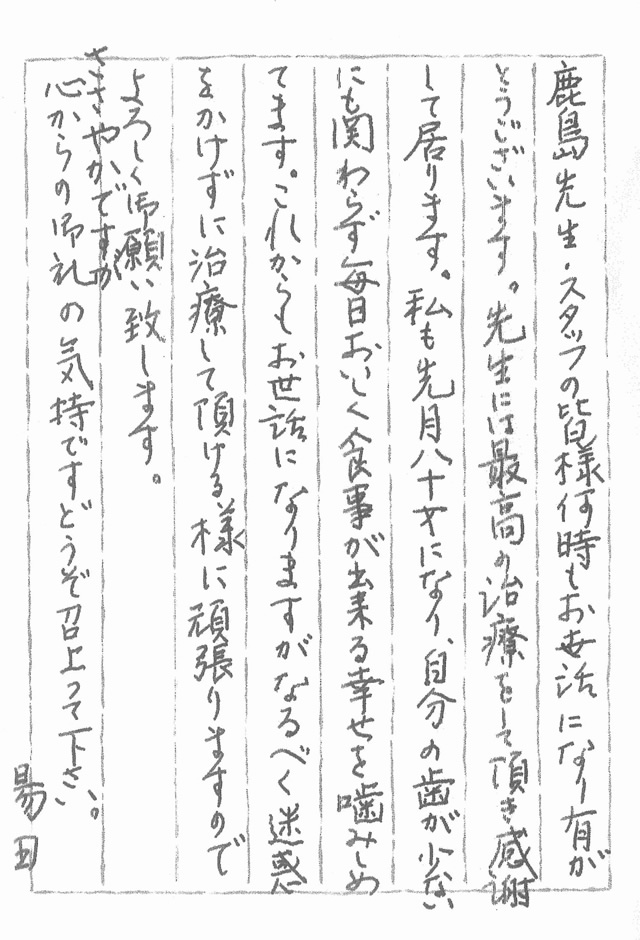 鹿島先生・スタッフの皆様何時もお世話になり有が
とうございます。先生には最高の治療をして頂き感謝
して居ります。私も先月八十才になり、自分の歯が少ない
にも関わらず毎日おいしく食事が出来る幸せを噛みしめ
てます。これからもお世話になりますがなるべく迷惑
をかけずに治療して頂ける様に頑張りますので
よろしく御願い致します。
ささやかですが
心からの御礼の気持ですどうぞ召上って下さい。
田